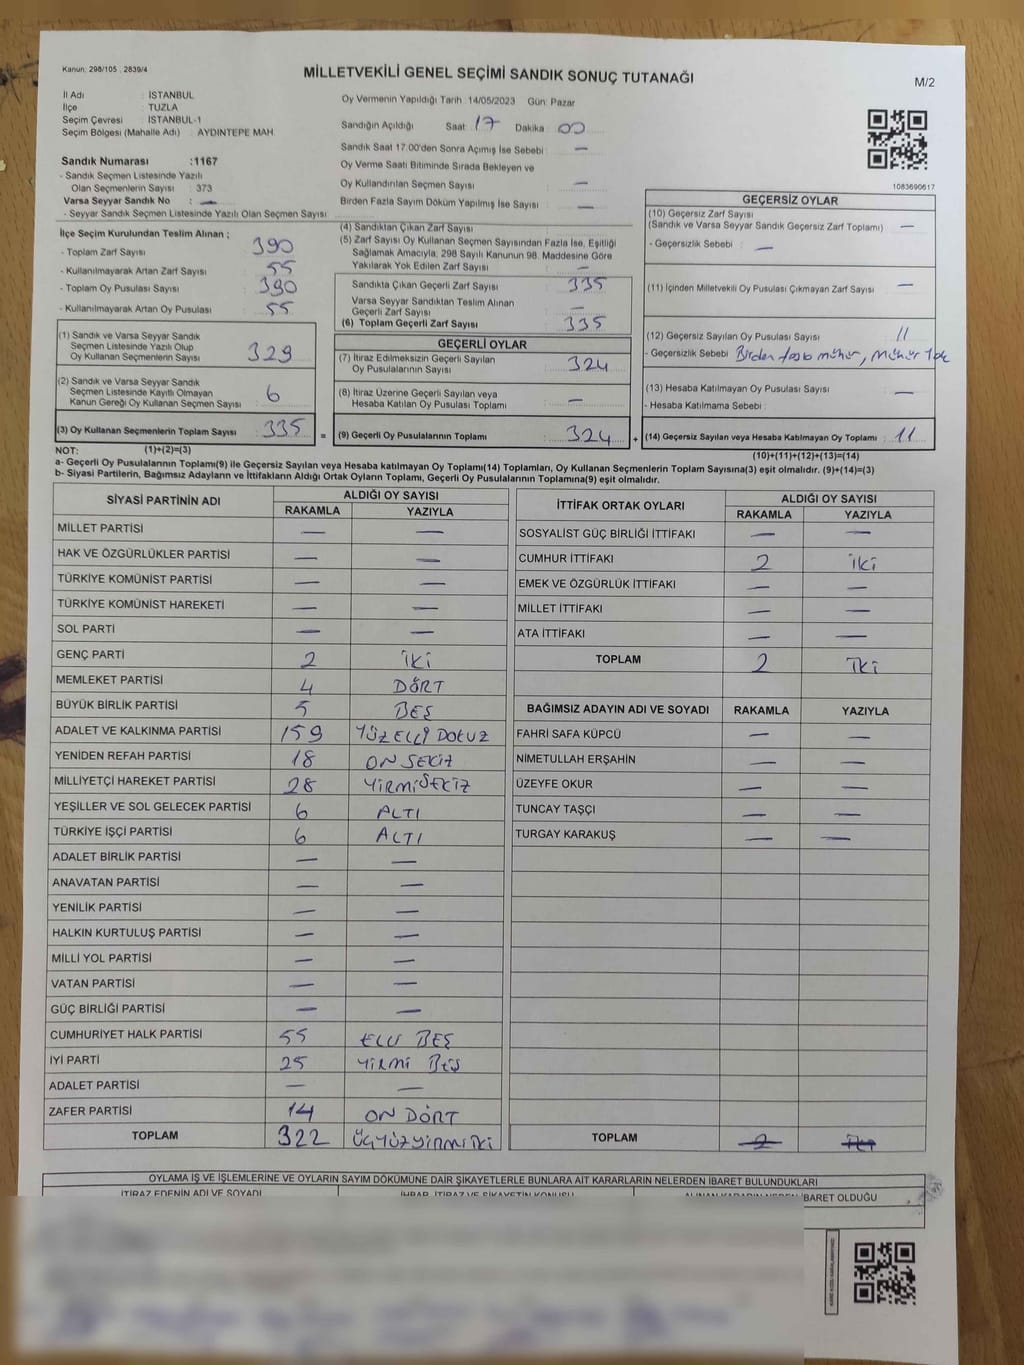 Kanun: 298/105 , 2839/4
MİLLETVEKİLİ GENEL SEÇİMİ SANDIK SONUÇ TUTANAĞI
M/2
İl Adı : İSTANBUL
İlçe : TUZLA
Seçim Çevresi : İSTANBUL-1
Seçim Bölgesi (Mahalle Adı) : AYDINTEPE MAH.
Oy Vermenin Yapıldığı Tarih :14/05/2023 Gün: Pazar
Sandığın Açıldığı Saat 17 Dakika 00
Sandık Saat 17.00'den Sonra Açımış İse Sebebi : —
Oy Verme Saati Bitiminde Sırada Bekleyen ve
Oy Kullandırılan Seçmen Sayısı —
Birden Fazla Sayım Döküm Yapılmış İse Sayısı : —
Sandık Numarası :1167
- Sandık Seçmen Listesinde Yazılı
Olan Seçmenlerin Sayısı : 373
Varsa Seyyar Sandık No : —
- Seyyar Sandık Seçmen Listesinde Yazılı Olan Seçmen Sayısı :
1083690617
İlçe Seçim Kurulundan Teslim Alınan ;
- Toplam Zarf Sayısı 390
- Kullanılmayarak Artan Zarf Sayısı 55
- Toplam Oy Pusulası Sayısı 390
- Kullanılmayarak Artan Oy Pusulası 55
(1) Sandık ve Varsa Seyyar Sandık
Seçmen Listesinde Yazılı Olup
Oy Kullanan Seçmenlerin Sayısı 329
(2) Sandık ve Varsa Seyyar Sandık
Seçmen Listesinde Kayıtlı Olmayan
Kanun Gereği Oy Kullanan Seçmen Sayısı : 6
(3) Oy Kullanan Seçmenlerin Toplam Sayısı 335
(1)+(2)=(3)
(4) Sandıktan Çıkan Zarf Sayısı
(5) Zarf Sayısı Oy Kullanan Seçmen Sayısından Fazla İse, Eşitliği
Sağlamak Amacıyla, 298 Sayılı Kanunun 98. Maddesine Göre
Yakılarak Yok Edilen Zarf Sayısı —
Sandıkta Çıkan Geçerli Zarf Sayısı 335
Varsa Seyyar Sandıktan Teslim Alınan
Geçerli Zarf Sayısı : —
(6) Toplam Geçerli Zarf Sayısı 335
GEÇERLİ OYLAR
(7) İtiraz Edilmeksizin Geçerli Sayılan
Oy Pusulalarının Sayısı : 324
(8) İtiraz Üzerine Geçerli Sayılan veya
Hesaba Katılan Oy Pusulası Toplamı —
= (9) Geçerli Oy Pusulalarının Toplamı 324 +
GEÇERSİZ OYLAR
(10) Geçersiz Zarf Sayısı
(Sandık ve Varsa Seyyar Sandık Geçersiz Zarf Toplamı) —
- Geçersizlik Sebebi : —
(11) İçinden Milletvekili Oy Pusulası Çıkmayan Zarf Sayısı —
(12) Geçersiz Sayılan Oy Pusulası Sayısı 11
- Geçersizlik Sebebi Birden fazla mühür, mühür Yok
(13) Hesaba Katılmayan Oy Pusulası Sayısı —
- Hesaba Katılmama Sebebi :
(14) Geçersiz Sayılan veya Hesaba Katılmayan Oy Toplamı 11
(10)+(11)+(12)+(13)=(14)
NOT:
a- Geçerli Oy Pusulalarının Toplamı(9) ile Geçersiz Sayılan veya Hesaba katılmayan Oy Toplamı(14) Toplamları, Oy Kullanan Seçmenlerin Toplam Sayısına(3) eşit olmalıdır. (9)+(14)=(3)
b- Siyasi Partilerin, Bağımsız Adayların ve İttifakların Aldığı Ortak Oyların Toplamı, Geçerli Oy Pusulalarının Toplamına(9) eşit olmalıdır.
SİYASİ PARTİNİN ADI ALDIĞI OY SAYISI
RAKAMLA YAZIYLA
MİLLET PARTİSİ — —
HAK VE ÖZGÜRLÜKLER PARTİSİ — —
TÜRKİYE KOMÜNİST PARTİSİ — —
TÜRKİYE KOMÜNİST HAREKETİ — —
SOL PARTİ — —
GENÇ PARTİ 2 İKİ
MEMLEKET PARTİSİ 4 DÖRT
BÜYÜK BİRLİK PARTİSİ 5 BEŞ
ADALET VE KALKINMA PARTİSİ 159 YÜZELLİ DOKUZ
YENİDEN REFAH PARTİSİ 18 ON SEKİZ
MİLLİYETÇİ HAREKET PARTİSİ 28 YİRMİSEKİZ
YEŞİLLER VE SOL GELECEK PARTİSİ 6 ALTI
TÜRKİYE İŞÇİ PARTİSİ 6 ALTI
ADALET BİRLİK PARTİSİ — —
ANAVATAN PARTİSİ — —
YENİLİK PARTİSİ — —
HALKIN KURTULUŞ PARTİSİ — —
MİLLİ YOL PARTİSİ — —
VATAN PARTİSİ — —
GÜÇ BİRLİĞİ PARTİSİ — —
CUMHURİYET HALK PARTİSİ 55 ELLİ BEŞ
İYİ PARTİ 25 YİRMİ BEŞ
ADALET PARTİSİ — —
ZAFER PARTİSİ 14 ON DÖRT
TOPLAM 322 ÜÇYÜZYİRMİ İKİ
İTTİFAK ORTAK OYLARI ALDIĞI OY SAYISI
RAKAMLA YAZIYLA
SOSYALİST GÜÇ BİRLİĞİ İTTİFAKI — —
CUMHUR İTTİFAKI 2 İKİ
EMEK VE ÖZGÜRLÜK İTTİFAKI — —
MİLLET İTTİFAKI — —
ATA İTTİFAKI — —
TOPLAM 2 İKİ
BAĞIMSIZ ADAYIN ADI VE SOYADI RAKAMLA YAZIYLA
FAHRİ SAFA KÜPCÜ — —
NİMETULLAH ERŞAHİN — —
ÜZEYFE OKUR — —
TUNCAY TAŞÇI — —
TURGAY KARAKUŞ — —
TOPLAM 2 İKİ
OYLAMA İŞ VE İŞLEMLERİNE VE OYLARIN SAYIM DÖKÜMÜNE DAİR ŞİKAYETLERLE BUNLARA AİT KARARLARIN NELERDEN İBARET BULUNDUKLARI
İTİRAZ EDENİN ADI VE SOYADI İHBAR, İTİRAZ VE ŞİKAYETİN KONUSU ALINAN KARARIN NEDEN İBARET OLDUĞU